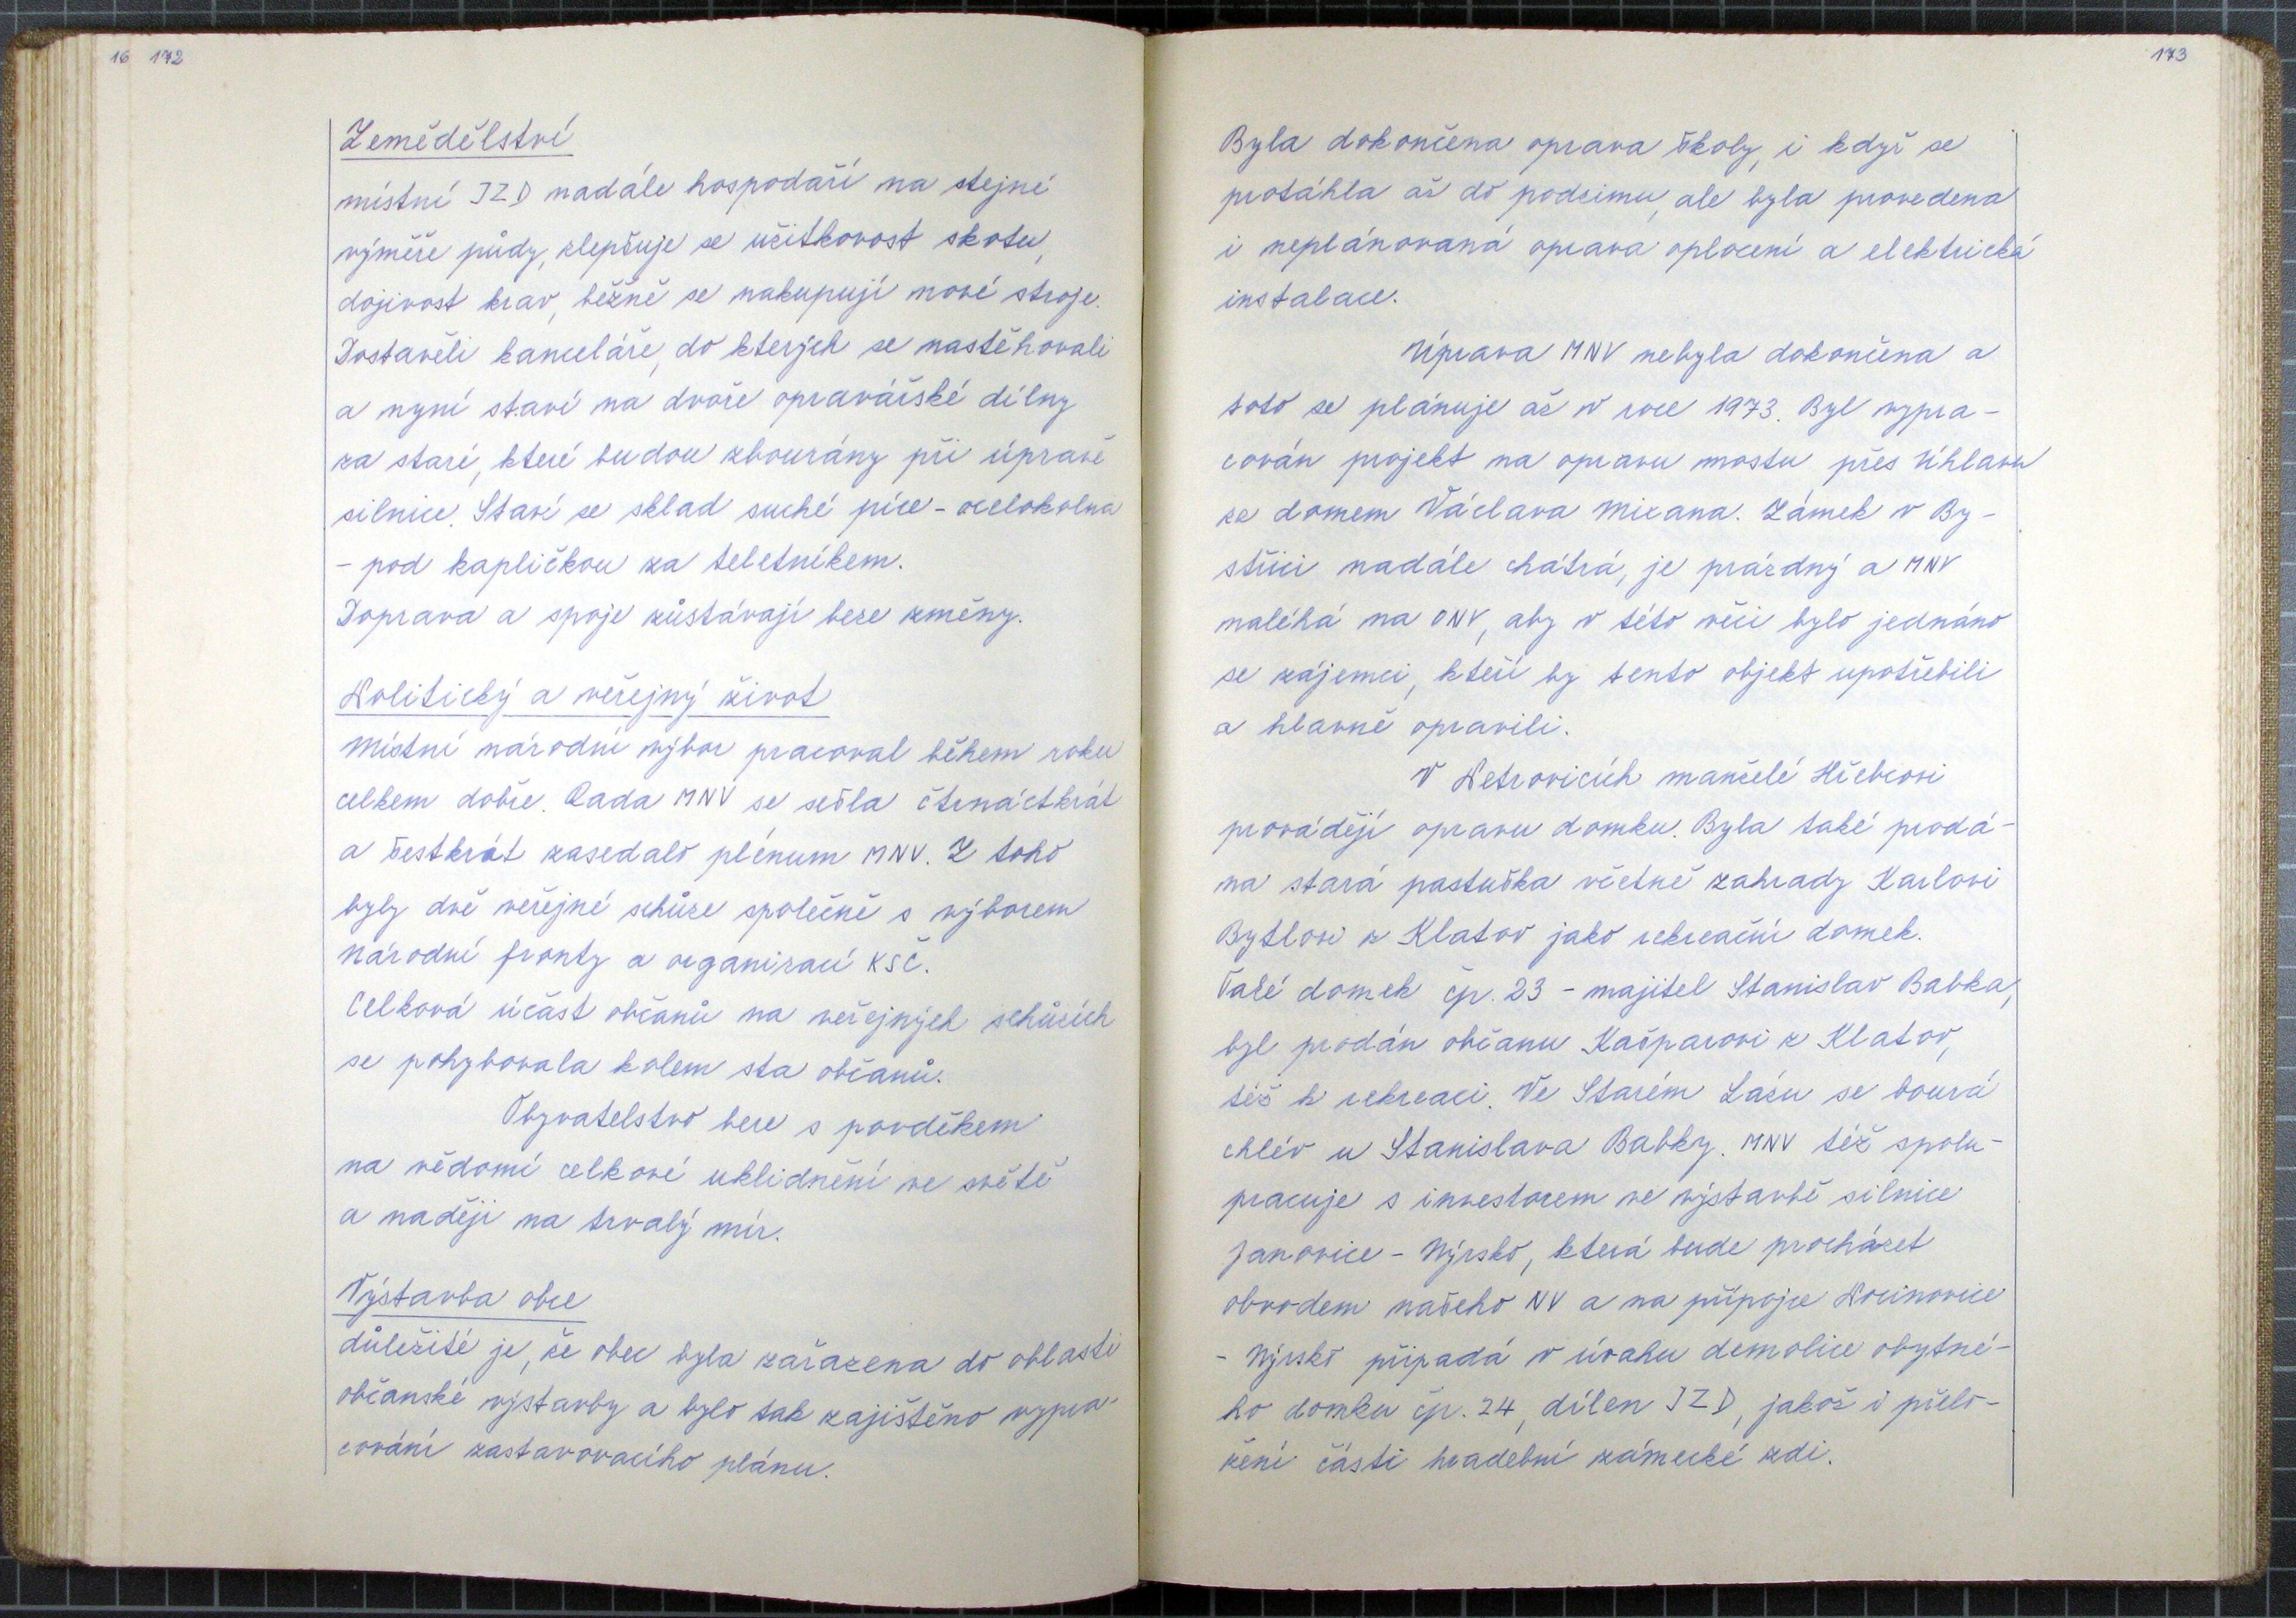 16 172
Zemědělství
místní JZD nadále hospodaří na stejné
výměře půdy, zlepšuje se užitkovost skotu,
dojivost krav, běžně se nakupují nové stroje.
Dostavěli kanceláře, do kterých se nastěhovali
a nyní staví na dvoře opravářské dílny
za staré, které budou zbourány při úpravě
silnice. Staví se sklad suché píce - ocelokolna
- pod kapličkou za teletníkem.
Doprava a spoje zůstávají beze změny.
Politický a veřejný život
Místní národní výbor pracoval během roku
celkem dobře. Rada MNV se sešla čtrnáctkrát
a šestkrát zasedalo plénum MNV. Z toho
byly dvě veřejné schůze společně s výborem
Národní fronty a organizací KSČ.
Celková účast občanů na veřejných schůzích
se pohybovala kolem sta občanů.
Obyvatelstvo bere s povděkem
na vědomí celkové uklidnění ve světě
a naději na trvalý mír.
Výstavba obce
důležité je, že obec byla zařazena do oblasti
občanské výstavby a bylo tak zajištěno vypra-
cování zastavovacího plánu.
173
Byla dokončena oprava školy, i když se
protáhla až do podzimu, ale byla provedena
i neplánovaná oprava oplocení a elektrická
instalace.
Úprava MNV nebyla dokončena a
toto se plánuje až v roce 1973. Byl vypra-
cován projekt na opravu mostu přes Úhlavu
za domem Václava Mizana. Zámek v By-
střici nadále chátrá, je prázdný a MNV
naléhá na ONV, aby v této věci bylo jednáno
se zájemci, kteří by tento objekt upotřebili
a hlavně opravili.
V Petrovicích manželé Hřebcovi
provádějí opravu domku. Byla také prodá-
na stará pastuška včetně zahrady Karlovi
Bytlovi z Klatov jako rekreační domek.
Také domek čp. 23 - majitel Stanislav Babka,
byl prodán občanu Kašparovi z Klatov,
též k rekreaci. Ve Starém Lázu se bourá
chlév u Stanislava Babky. MNV též spolu-
pracuje s investorem ve výstavbě silnice
Janovice - Nýrsko, která bude procházet
obvodem našeho NV a na přípojce Pocinovice
- Nýrsko připadá v úvahu demolice obytné-
ho domku čp. 24, dílen JZD, jakož i přelo-
žení části hradební zámecké zdi.